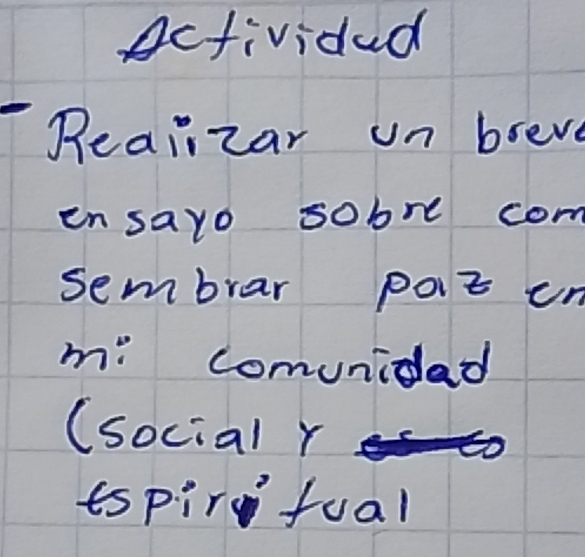 Actividad
- Realizar un breve
ensayo sobre com
sembrar paz en
mi comunidad
(social y
espiritual